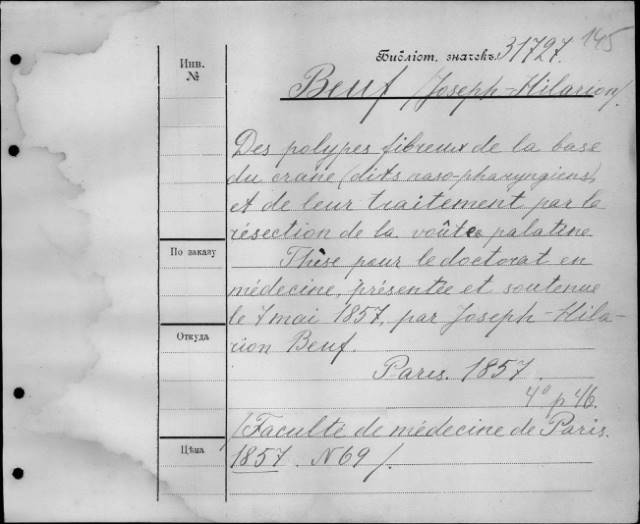 145
Библіот. значекъ 31727.
Инв.
№
Beuf /Joseph-Hilarion/
Des polypes fibreux de la base
du crâne (dits naso-pharyngiens)
et de leur traitement par la
résection de la voûte palatine
По заказу
Thèse pour le doctorat en
médecine, présentée et soutenue
le 7 mai 1857, par Joseph-Hila-
rion Beuf.
Откуда
Paris. 1857.
4° p 46.
/Faculté de médecine de Paris.
1857. N 69/.
Цѣна